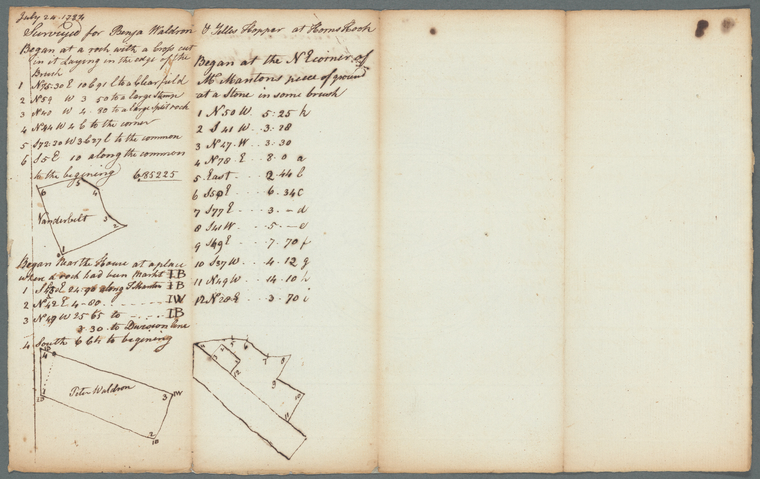 July 24. 1784
Surveyed for Benja Waldron
Began at a rock with a Cross cut
in it Laying in the edge of the
Brush
1 N35.30 E 10 6 91 L to a Clear field
2 N 52 W 3 50 to a large Stump
3 N 40 W 2 . 80 to a large split rock
4 N 44 W 4 6 to the corner
5 S 72.30 W 3 6 27 l to the common
6 S 5 E 10 along the common
to the begining 6.85225
6 5 4
Vanderbelt
3 2
1
Began Near the House at a place
where a rock had been Markt I B
1 S 43 E 24.90 along I B
2 N 42 E 4-00 I W
3 N 49 W 25 65 to I B
3.30 to Division line
4 South 6 61 to begining
4
Peter Waldron
3 IW
2
& Telles Hopper at Horns Hook
Began at the N E corner of
Mr Mantons piece of ground
at a Stone in some brush
1 N 50 W . 5 . 25 k
2 S 41 W . 3 . 28
3 N 47 . W . . 3 . 30
4 N 78 . E . . . 8 . 0 a
5 East . . . . 2 44 b
6 S 50 E . . . 6 . 34 c
7 S 77 E . . . . 3 . – d
8 S 41 W . . . . 5 . – e
9 S 49 E . . . . 7 . 70 f
10 S 37 W . . . . 4 . 12 g
11 N 49 W . . . . 14 . 10 h
12 N 28 E . . . 3 . 70 i